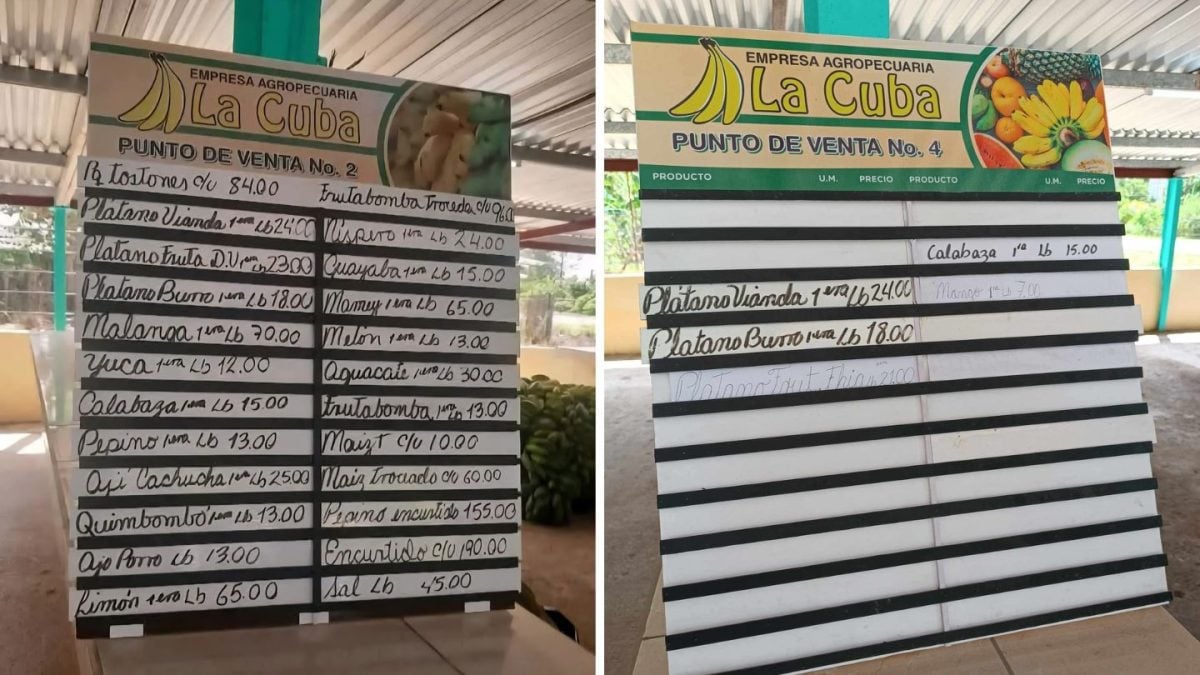 EMPRESA AGROPECUARIA
La Cuba
PUNTO DE VENTA No. 2
Tostones c/u 84.00
Frutabomba Troceda c/u 96.0
Plátano Vianda 1era Lb 24.00
Nispero 1era Lb 24.00
Platano Fruta D.V 1era Lb 23.00
Guayaba 1era Lb 15.00
Platano Burro 1era Lb 18.00
Mamey 1era Lb 65.00
Malanga 1era Lb 70.00
Melón 1era Lb 13.00
Yuca 1era Lb 12.00
Aguacate 1era Lb 30.00
Calabaza 1era Lb 15.00
Frutabomba 1era Lb 13.00
Pepino 1era Lb 13.00
Maiz T c/u 10.00
Ají Cachucha 1era Lb 25.00
Maiz troceado c/u 60.00
Quimbombó 1era Lb 13.00
Pepino encurtido 155.00
Ajo Porro Lb 13.00
Encurtido c/u 190.00
Limón 1era Lb 65.00
Sal Lb 45.00
EMPRESA AGROPECUARIA
La Cuba
PUNTO DE VENTA No. 4
PRODUCTO U.M. PRECIO PRODUCTO U.M. PRECIO
Calabaza 1ra Lb 15.00
Plátano Vianda 1era Lb 24.00
Mango 1ra Lb 7.00
Platano Burro 1era Lb 18.00
Platano Frut. Lb 21.00